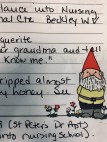 dance into Nursing
al Ctr. Beckley WV
querite
r grandma and tell
know me."
ripped almost
ny honey
(St Peter's Dr Apts
into nursing School).